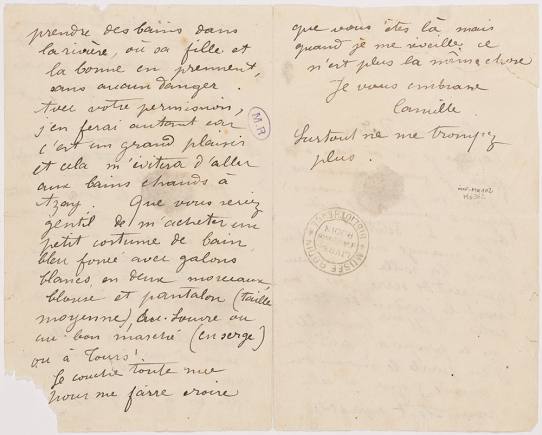 prendre des bains dans
la rivière, où sa fille et
la bonne en prennent,
sans aucun danger.
Avec votre permission,
j'en ferai autant car
c'est un grand plaisir
et cela m'évitera d'aller
aux bains chauds à
Azay. Que vous seriez
gentil de m'acheter un
petit costume de bain,
bleu foncé avec galons
blancs, en deux morceaux,
blouse et pantalon (taille
moyenne), au Louvre ou
au bon marché (en serge)
ou à Tours!
Je couche toute nue
pour me faire croire
M.R
que vous êtes là mais
quand je me réveille ce
n'est plus la même chose
Je vous embrasse
Camille
Surtout ne me trompez
plus.
MUSÉE RODIN